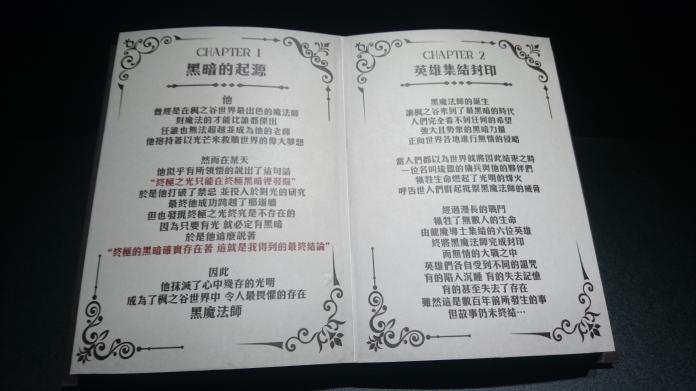 CHAPTER 1
黑暗的起源
他
曾經是在楓之谷世界最出色的魔法師
對魔法的才能比誰都傑出
任誰也無法超越並成為他的老師
他抱持著以光芒來救贖世界的偉大夢想
然而在某天
他似乎有所領悟的說出了這句話
“終極之光只能在終極黑暗裡發掘”
於是他打破了禁忌 並投入於對光的研究
最終他成功跨越了那道牆
但也發現終極之光終究是不存在的
因為只要有光 就必定有黑暗
於是他這麼說著
“終極的黑暗確實存在著 這就是我得到的最終結論”
因此
他抹滅了心中殘存的光明
成為了楓之谷世界中 令人最畏懼的存在
黑魔法師
CHAPTER 2
英雄集結封印
黑魔法師的誕生
讓楓之谷來到了最黑暗的時代
人們完全看不到任何的希望
強大且勢眾的黑暗力量
正向世界各地進行無情的侵略
當人們都以為世界就將因此結束之時
一位名叫琉德的傭兵與他的夥伴們
犧牲生命燃起了光明的烽火
呼告世人們群起抵禦黑魔法師的威脅
經過漫長的戰鬥
犧牲了無數人的生命
由龍魔導士集結的六位英雄
終將黑魔法師完成封印
而無情的大戰之中
英雄們各自受到不同的詛咒
有的陷入沉睡 有的失去記憶
有的甚至失去了存在
雖然這是數百年前所發生的事
但故事仍未終結…